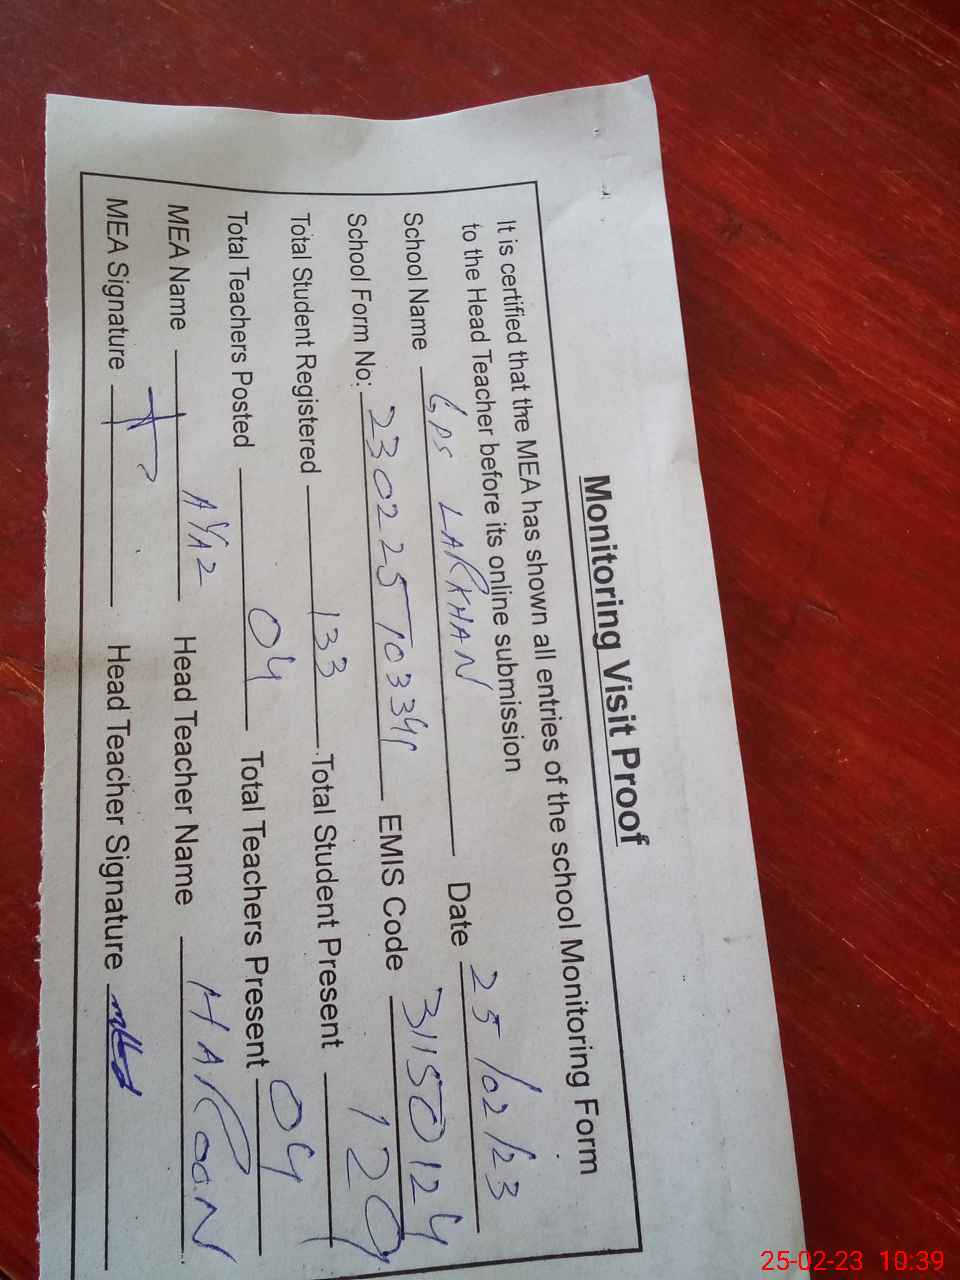 Monitoring Visit Proof
It is certified that the MEA has shown all entries of the school Monitoring Form
to the Head Teacher before its online submission
School Name GPS LARKHAN Date 25/02/23
School Form No: 230225T0334 EMIS Code 31150124
Total Student Registered 133 Total Student Present 120
Total Teachers Posted 04 Total Teachers Present 04
MEA Name AYAZ Head Teacher Name HAROON
MEA Signature Head Teacher Signature
25-02-23 10:39